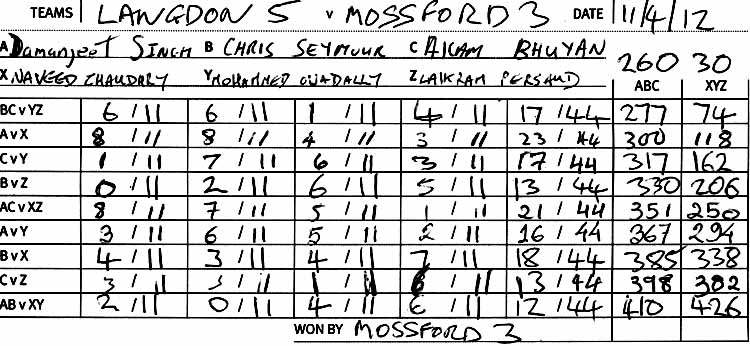 TEAMS LANGDON 5 v MOSSFORD 3 DATE 11/4/12
A Damanjeet SINGH B CHRIS SEYMOUR C AKAM BHUYAN 260 30
X NAVEED CHAUDARY Y MOHAMMED OUADALLY Z LAIKRAM PERSAUD ABC XYZ
BC v YZ 6/11 6/11 1/11 4/11 17/44 277 74
A v X 8/11 8/11 4/11 3/11 23/44 300 118
C v Y 1/11 7/11 6/11 3/11 17/44 317 162
B v Z 0/11 2/11 6/11 5/11 13/44 330 206
AC v XZ 8/11 7/11 5/11 1/11 21/44 351 250
A v Y 3/11 6/11 5/11 2/11 16/44 367 294
B v X 4/11 3/11 4/11 7/11 18/44 385 338
C v Z 3/11 3/11 1/11 6/11 13/44 398 382
AB v XY 2/11 0/11 4/11 6/11 12/44 410 426
WON BY MOSSFORD 3